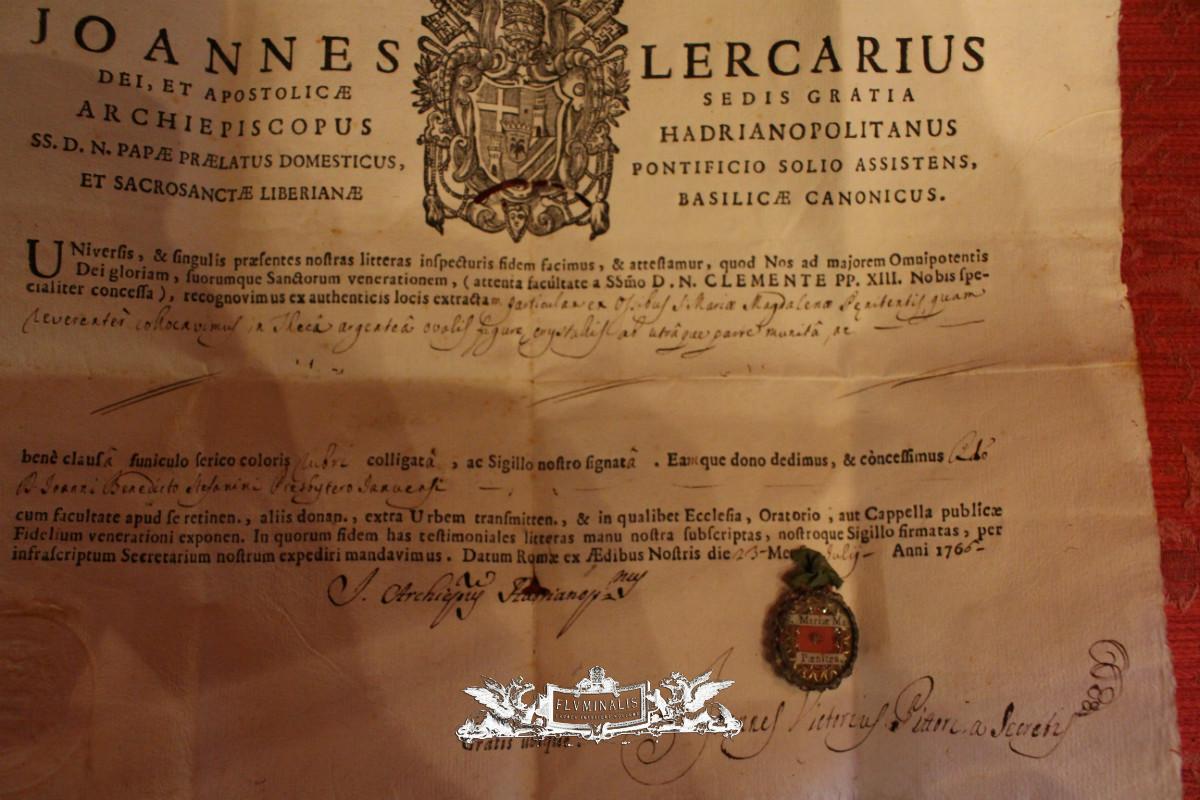 JOANNES LERCARIUS
DEI, ET APOSTOLICÆ SEDIS GRATIA
ARCHIEPISCOPUS HADRIANOPOLITANUS
SS. D. N. PAPÆ PRÆLATUS DOMESTICUS, PONTIFICIO SOLIO ASSISTENS,
ET SACROSANCTÆ LIBERIANÆ BASILICÆ CANONICUS.
UNiversis, & singulis præsentes nostras litteras inspecturis fidem facimus, & attestamur, quod Nos ad majorem Omnipotentis
Dei gloriam, suorumque Sanctorum venerationem, (attenta facultate a SSmo D. N. CLEMENTE PP. XIII. Nobis spe-
cialiter concessa), recognovimus ex authenticis locis extractam particulam ex Ossibus S. Mariæ Magdalenæ Penitentis quam
reverenter collocavimus in Thecâ argenteâ ovalis figuræ crystallis ab utrâque parte munitâ, ac
benè clausâ funiculo serico coloris rubri colligatâ, ac Sigillo nostro signatâ. Eamque dono dedimus, & còncessimus
D. Joanni Benedicto Stefanini Presbytero Januensi
cum facultate apud se retinen., aliis donan., extra Urbem transmitten., & in qualibet Ecclesia, Oratorio, aut Cappella publicæ
Fidelium venerationi exponen. In quorum fidem has testimoniales litteras manu nostra subscriptas, nostroque Sigillo firmatas, per
infrascriptum Secretarium nostrum expediri mandavimus. Datum Romæ ex Ædibus Nostris die 23 Mensis Julij Anni 1766
J. Archiepus Hadrianopnus
S. Mariæ Ma
Pænitent
FLVMINALIS
Gratis ubique.
Joannes Victorius Pittori a Secretis